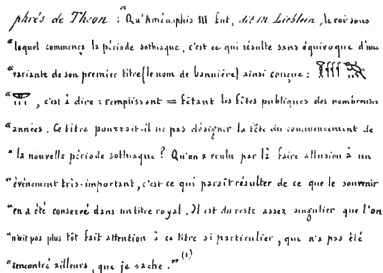 phrès de Théon : "Qu'Aménophis III fut, dit M. Lieblein, le roi sous
"lequel commença la période sothiaque, c'est ce qui résulte sans équivoque d'une
"variante de son premier titre (le nom de bannière) ainsi conçue :
" , c'est à dire : remplissant = fêtant les fêtes publiques des nombreuses
"années. Ce titre pourrait-il ne pas désigner la fête du commencement de
"la nouvelle période sothiaque ? Qu'on a voulu par là faire allusion à un
"événement très-important, c'est ce que paraît résulter de ce que le souvenir
"en a été conservé dans un titre royal. Il est du reste assez singulier que l'on
"n'ait pas plus tôt fait attention à ce titre si particulier, que n'a pas été
"rencontré ailleurs, que je sache." (1)